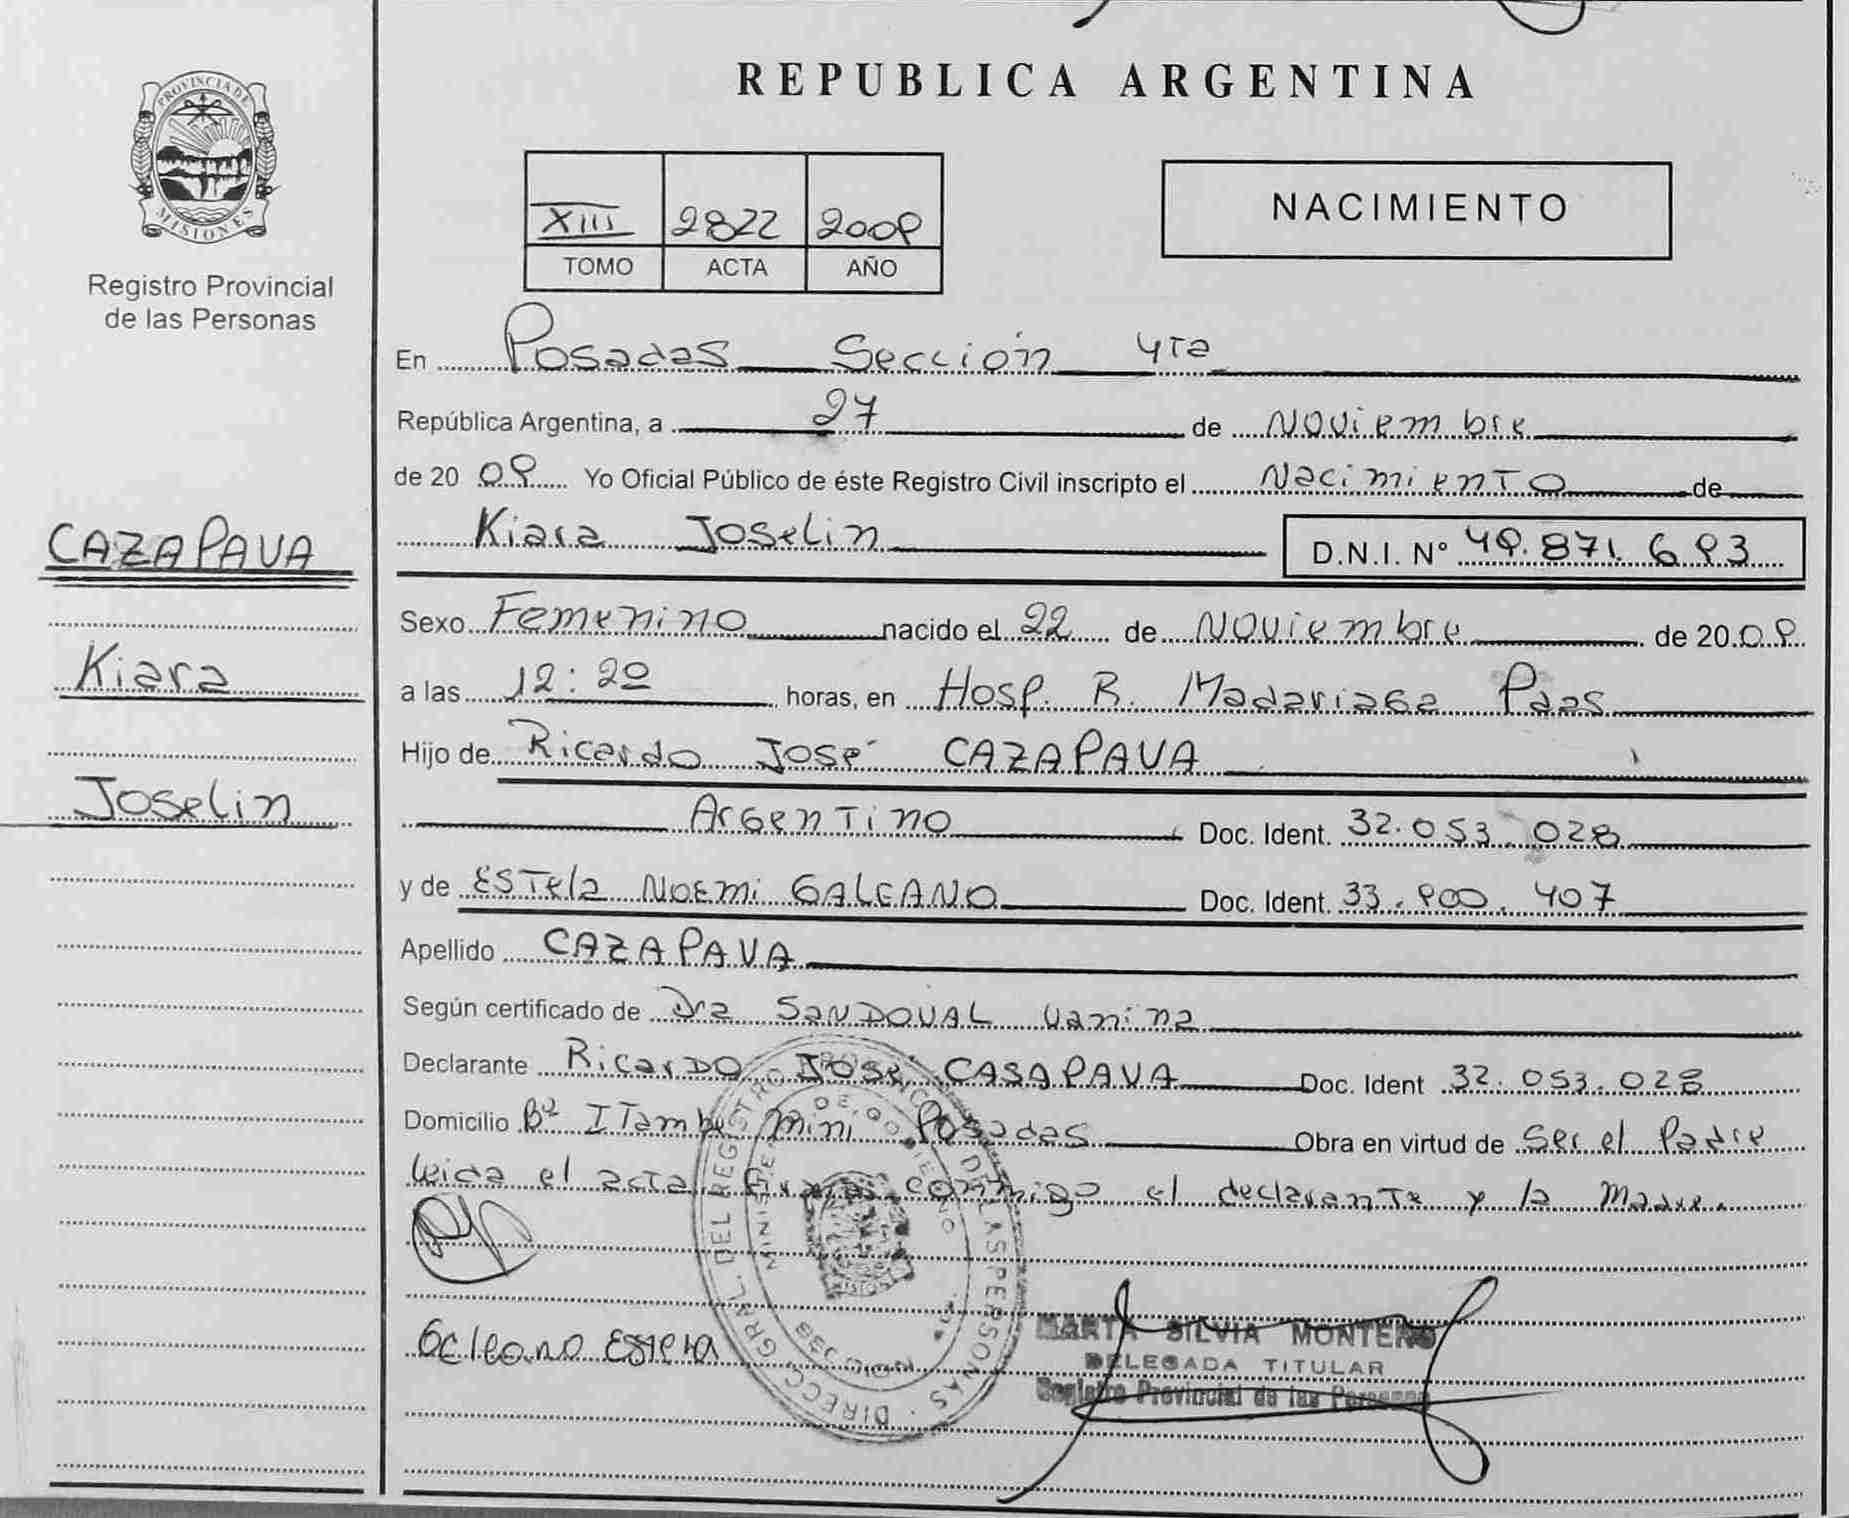 REPUBLICA ARGENTINA
PROVINCIA DE MISIONES
Registro Provincial
de las Personas
XIII 2822 2009
TOMO ACTA AÑO
NACIMIENTO
En Posadas Sección 4ta
República Argentina, a 27 de Noviembre
de 20 09 Yo Oficial Público de éste Registro Civil inscripto el Nacimiento de
Kiara Joselin D.N.I. N° 49.871.693
CAZAPAVA
Kiara
Joselin
Sexo Femenino nacido el 22 de Noviembre de 20 09
a las 12:20 horas, en Hosp. R. Madariaga Pdas
Hijo de Ricardo José CAZAPAVA
Argentino Doc. Ident. 32.053.028
y de Estela NOEMi GALEANO Doc. Ident. 33.900.407
Apellido CAZAPAVA
Según certificado de Dra SANDOVAL Vanina
Declarante RicarDO José CASAPAVA Doc. Ident 32.053.028
Domicilio Bº ITambe mini Posadas Obra en virtud de Ser el Padre
leida el acta Firma conmigo el declarante y la Madre.
Galeano Estela
DIRECC. GRAL. DEL REGISTRO PROVINC. DE LAS PERSONAS
MINISTERIO DE GOBIERNO
MARTA SILVIA MONTERO
DELEGADA TITULAR
Registro Provincial de las Personas